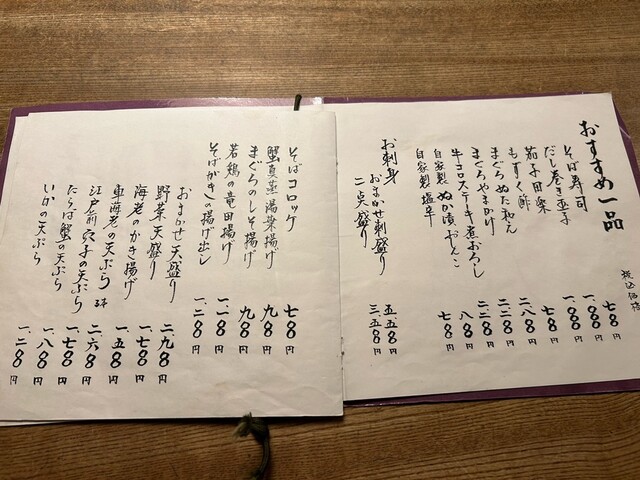 おすすめ一品
税込価格
そば寿司 七〇〇円
だし巻き玉子 一、〇〇〇円
茄子田楽 一、〇〇〇円
もずく酢 七〇〇円
まぐろぬた和え 二、八〇〇円
まぐろやまかけ 二、二〇〇円
牛コロステーキ煮おろし 二、二〇〇円
自家製ぬか漬おしんこ 八〇〇円
自家製塩辛 七〇〇円
お刺身
おまかせ刺盛り 五、五〇〇円
二点盛り 三、五〇〇円
そばコロッケ 七〇〇円
蟹真蒸湯葉揚げ 九〇〇円
まぐろのしそ揚げ 九〇〇円
若鶏の竜田揚げ 一、一〇〇円
そばがきの揚げ出し 一、二〇〇円
おまかせ天盛り 二、九〇〇円
野菜天盛り 一、七〇〇円
海老のかき揚げ 一、五〇〇円
車海老の天ぷら 二、六〇〇円
江戸前穴子の天ぷら 一、七〇〇円
たらば蟹の天ぷら 一、八〇〇円
いかの天ぷら 一、二〇〇円